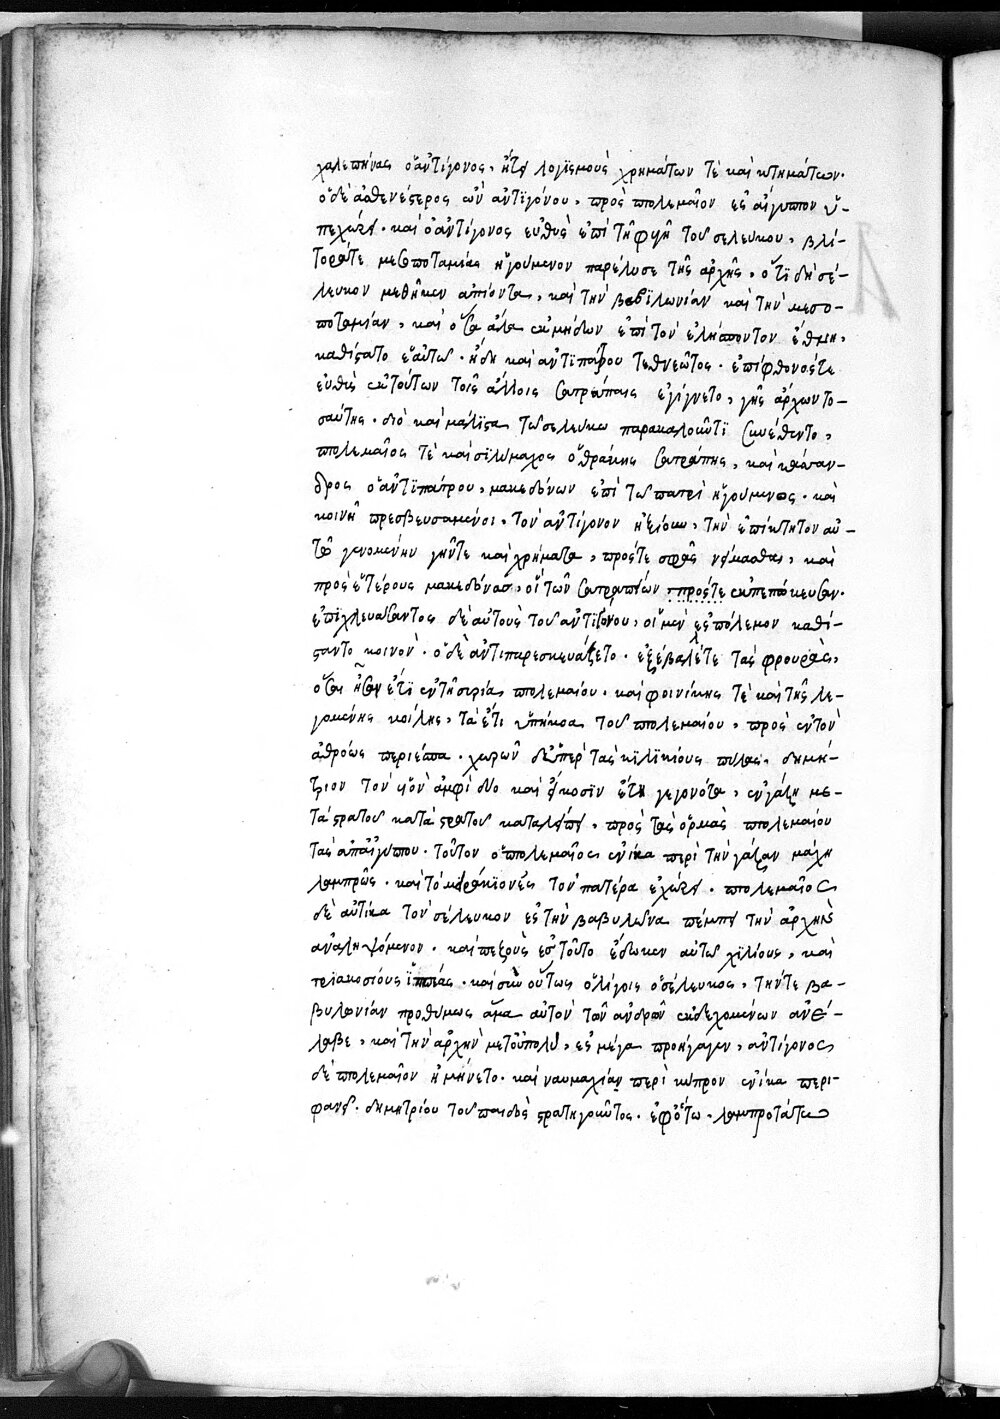 χαλεπήνας ὁ ἀντίγονος, ἤτει λογϊσμοὺς χρημάτων τὲ καὶ κτημάτων.
ὁ δὲ ἀσθενέστερος ὢν ἀντιγόνου, πρὸς πτολεμαῖον ἐς αἴγυπτον ὑ-
πεχώρει. καὶ ὁ ἀντίγονος εὐθὺς ἐπὶ τῇ φυγῇ τοῦ σελεύκου, βλί-
τορά τε μεσοποταμίας ἡγούμενον παρέλυσε τῆς ἀρχῆς, ὅτϊ δὴ σέ-
λευκον μεθῆκεν ἀπιόντα, καὶ τὴν βαβϊλωνίαν καὶ τὴν μεσο-
ποταμίαν, καὶ ὅσα ἄλλα ἐκ μήδων ἐπὶ τὸν ἑλήσποντον ἔθνη,
καθίστατο ἑαυτῶ. ἤδη καὶ ἀντϊπάτρου τεθνεῶτος. ἐπίφθονόστε
εὐθὺς ἐκ τούτων τοῖς ἄλλοις σατράπαις ἐγίγνετο, γῆς ἄρχων το-
σαύτης. διὸ καὶ μάλϊστα τῶ σελεύκω παρακαλοῦντϊ συνέθεντο,
πτολεμαῖος τὲ καὶ σϊλύμαχος ὁ θράκης σατράπης, καὶ κάσαν-
δρος ὁ ἀντϊπάτρου, μακεδόνων ἐπὶ τῶ πατρὶ ἡγούμενος. καὶ
κοινῇ πρεσβευσαμένοι, τὸν ἀντίγονον ἠξίουν, τὴν ἐπίκτητον αὐ-
τῶ γενομένην γῆντε καὶ χρήματα, πρόστε σφᾶς νείμασθαι, καὶ
πρὸς ἑτέρους μακεδόνας, οἳ τῶν σατραπειῶν πρόστε ἐκπεπτώκεισαν.
ἐπϊχλευάσαντος δὲ αὐτοὺς τοῦ ἀντϊγόνου, οἱ μὲν ἐς πόλεμον καθί-
σταντο κοινόν. ὁ δὲ ἀντιπαρεσκευάζετο. ἐξέβαλέτε τὰς φρουρὰς,
ὅσαι ἦσαν ἔτϊ ἐν τῇ συρίᾳ πτολεμαίου. καὶ φοινίκης τὲ καὶ τῆς λε-
γομένης κοίλης, τὰ ἔτι ὑπήκοα τοῦ πτολεμαίου, πρὸς ἑντὸν
ἀθρόως περιέσπα. χωρῶν δὲ ὑπὲρ τὰς κϊλϊκίους πύλας, δημή-
τριον τὸν υἱὸν ἀμφὶ δύο καὶ εἴκοσϊν ἔτη γεγονότα, ἐν γάζῃ με-
τὰ στρατοῦ καταλείπει, πρὸς τὰς ὁρμὰς πτολεμαίου
τὰς ἀπαιγύπτου. τοῦτον ὁ πτολεμαῖος ἐνίκα περὶ τὴν γάζαν μάχῃ
λαμπρῶς. καὶ τὸ μειράκϊον ἐς τὸν πατέρα ἐχώρει. πτολεμαῖος
δὲ αὐτίκα τὸν σέλευκον ἐς τὴν βαβυλῶνα πέμπει τὴν ἀρχὴν
ἀναληψόμενον. καὶ πεζοὺς ἐς τοῦτο ἔδωκεν αὐτῶ χϊλίους, καὶ
τριακοσίους ἱππέας. καὶ σὺν οὕτως ὀλίγοις ὁ σέλευκος, τήντε βα-
βυλωνίαν προθύμως ἅμα αὐτὸν τῶν ἀνδρῶν ἐκδεχομένων ἀνέ-
λαβε, καὶ τὴν ἀρχὴν μετοὐπολὺ, ἐς μέγα προήγαγεν, ἀντίγονος
δὲ πτολεμαῖον ἠμύνετο. καὶ ναυμαχίαν περὶ κύπρον ἐνίκα περι-
φανῆ. δημητρίου τοῦ παιδὸς στρατηγοῦντος. ἐφ' ὅτω. λαμπροτάτω